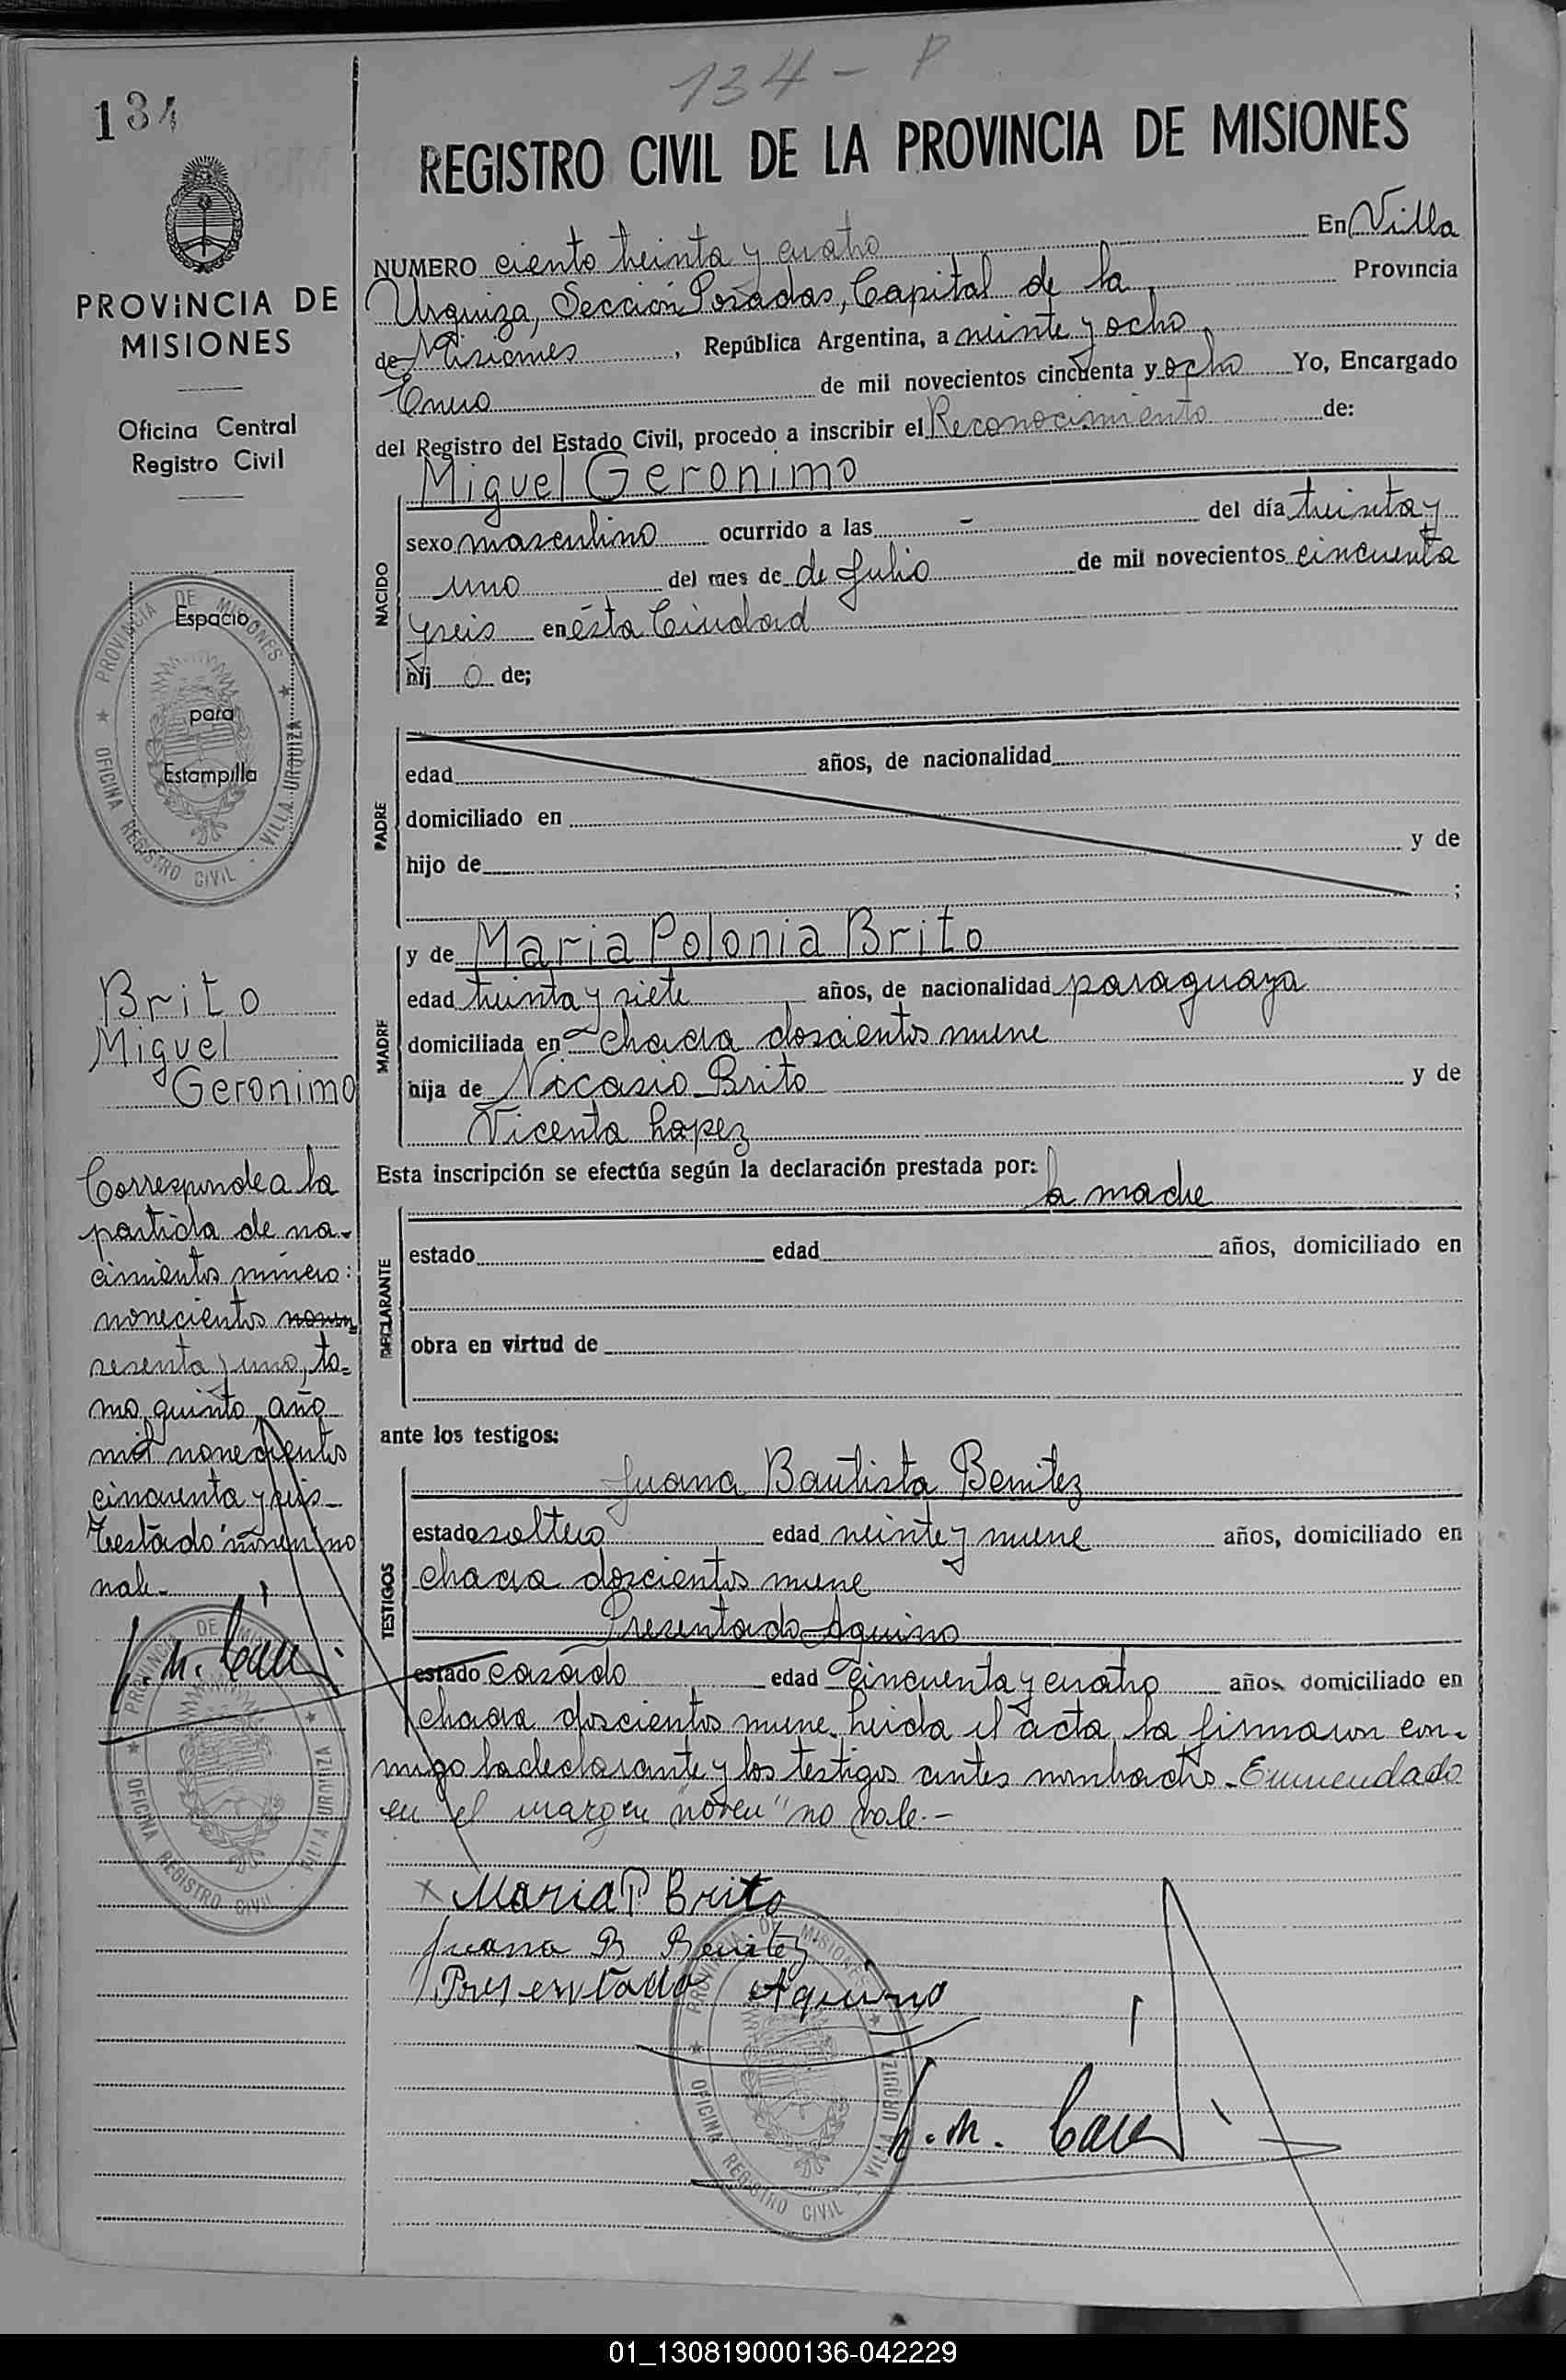 134 - P
134
REGISTRO CIVIL DE LA PROVINCIA DE MISIONES
PROVINCIA DE
MISIONES
Oficina Central
Registro Civil
Espacio
para
Estampilla
PROVINCIA DE MISIONES
OFICINA REGISTRO CIVIL - VILLA URQUIZA
Brito
Miguel
Geronimo
Corresponde a la
partida de na-
cimientos número:
novecientos noven
sesenta y uno, to-
mo quinto, año
mil novecientos
cincuenta y seis
Testado "noven" no
vale-
PROVINCIA DE MISIONES
OFICINA REGISTRO CIVIL - VILLA URQUIZA
NUMERO ciento treinta y cuatro En Villa
Urquiza, Sección Posadas, Capital de la Provincia
de Misiones, República Argentina, a veinte y ocho
Enero de mil novecientos cincuenta y ocho Yo, Encargado
del Registro del Estado Civil, procedo a inscribir el Reconocimiento de:
NACIDO
Miguel Geronimo
sexo masculino ocurrido a las - del día treinta y
uno del mes de de Julio de mil novecientos cincuenta
y seis en ésta Ciudad
hij o de;
PADRE
edad años, de nacionalidad
domiciliado en
hijo de y de
;
MADRE
y de Maria Polonia Brito
edad treinta y siete años, de nacionalidad paraguaya
domiciliada en chacra doscientos nueve
hija de Nicasio Brito y de
Vicenta Lopez
Esta inscripción se efectúa según la declaración prestada por:
la madre
DECLARANTE
estado edad años, domiciliado en
obra en virtud de
ante los testigos:
TESTIGOS
Juana Bautista Benitez
estado soltero edad veinte y nueve años, domiciliado en
chacra doscientos nueve
Presentado Aquino
estado casado edad cincuenta y cuatro años domiciliado en
chacra doscientos nueve. Leida el acta, la firmaron con-
migo la declarante y los testigos antes nombrados - Enmendado
en el margen "noven" no vale.-
x Maria P. Brito
Juana B Benitez
Presentado Aquino
PROVINCIA DE MISIONES
OFICINA REGISTRO CIVIL - VILLA URQUIZA
01_130819000136-042229